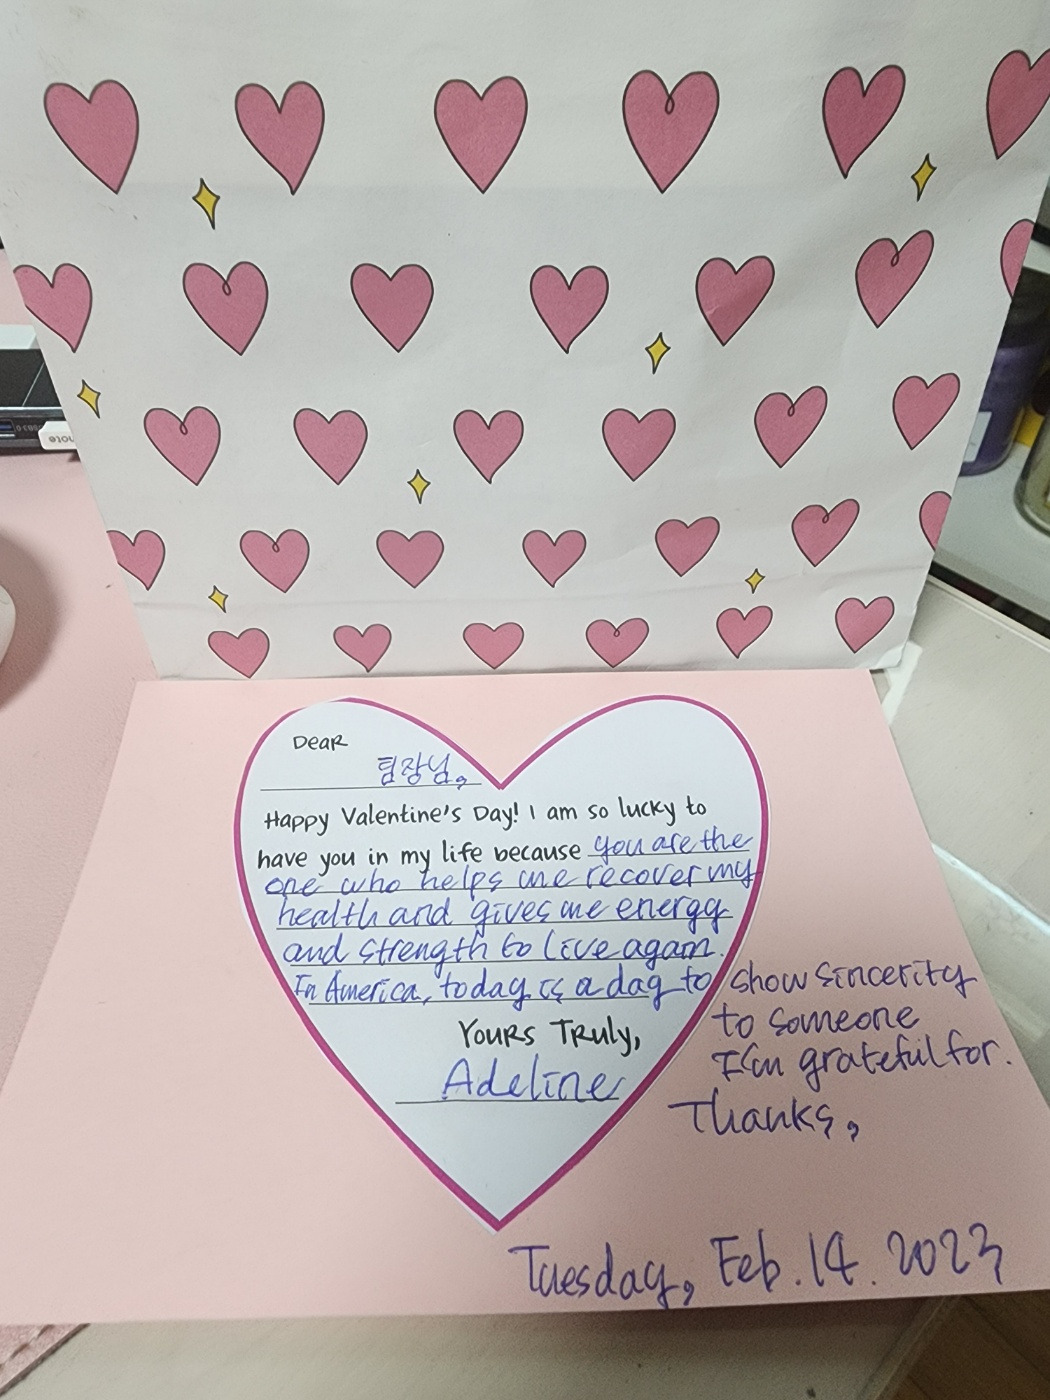 Dear
팀장님,
Happy Valentine's Day! I am so lucky to
have you in my life because you are the
one who helps me recover my
health and gives me energy
and strength to live again.
In America, today is a day to show sincerity
to someone
I'm grateful for.
Yours Truly,
Adeline
Thanks,
Tuesday, Feb. 14. 2023